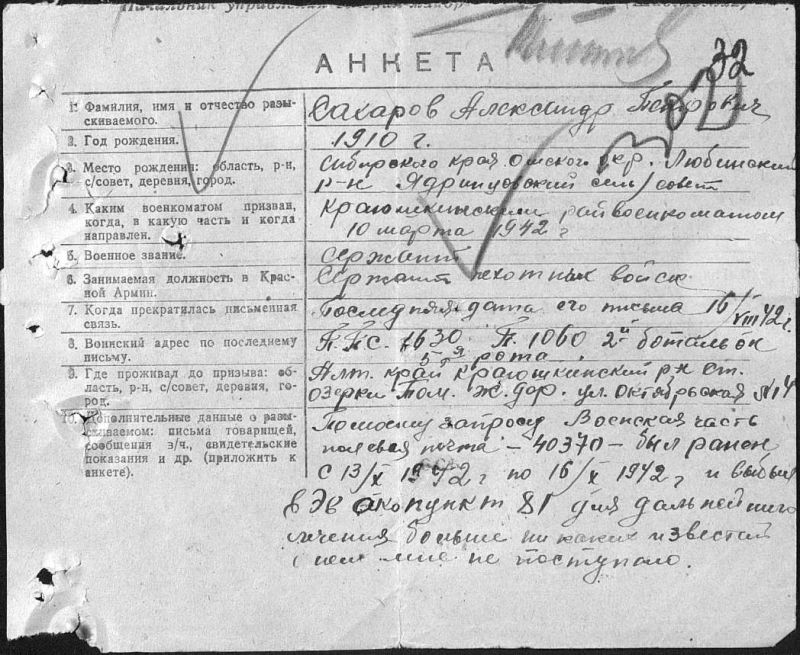 Начальник управления генерал-майор
АНКЕТА
32
1. Фамилия, имя и отчество разыскиваемого.
Сахаров Александр Петрович
2. Год рождения.
1910 г.
3. Место рождения: область, р-н, с/совет, деревня, город.
Сибирского края Омского окр. Любинский
р-н Ядринцовский сель/совет
4. Каким военкоматом призван, когда, в какую часть и когда направлен.
Краюшкинским райвоенкоматом
10 марта 1942 г
5. Военное звание.
Сержант
6. Занимаемая должность в Красной Армии.
Сержант пехотных войск
7. Когда прекратилась письменная связь.
Последняя дата его письма 16/VIII 42 г.
8. Воинский адрес по последнему письму.
П.П.с. 1630 П. 1060 2й батальон
5я рота.
9. Где проживал до призыва: область, р-н, с/совет, деревня, город.
Алт. край Краюшкинский р-н ст.
озерки Том. ж. дор. ул. Октябрьская №14
10. Дополнительные данные о разыскиваемом: письма товарищей, сообщения в/ч, свидетельские показания и др. (приложить к анкете).
Помоему запросу Военская часть
полевая почта – 40370 – был ранен
с 13/X 1942 г по 16/X 1942 г и выбыл
в Эвакопункт 81 для дальнейшего
лечения больше ни каких известий
о нем мне не поступало.